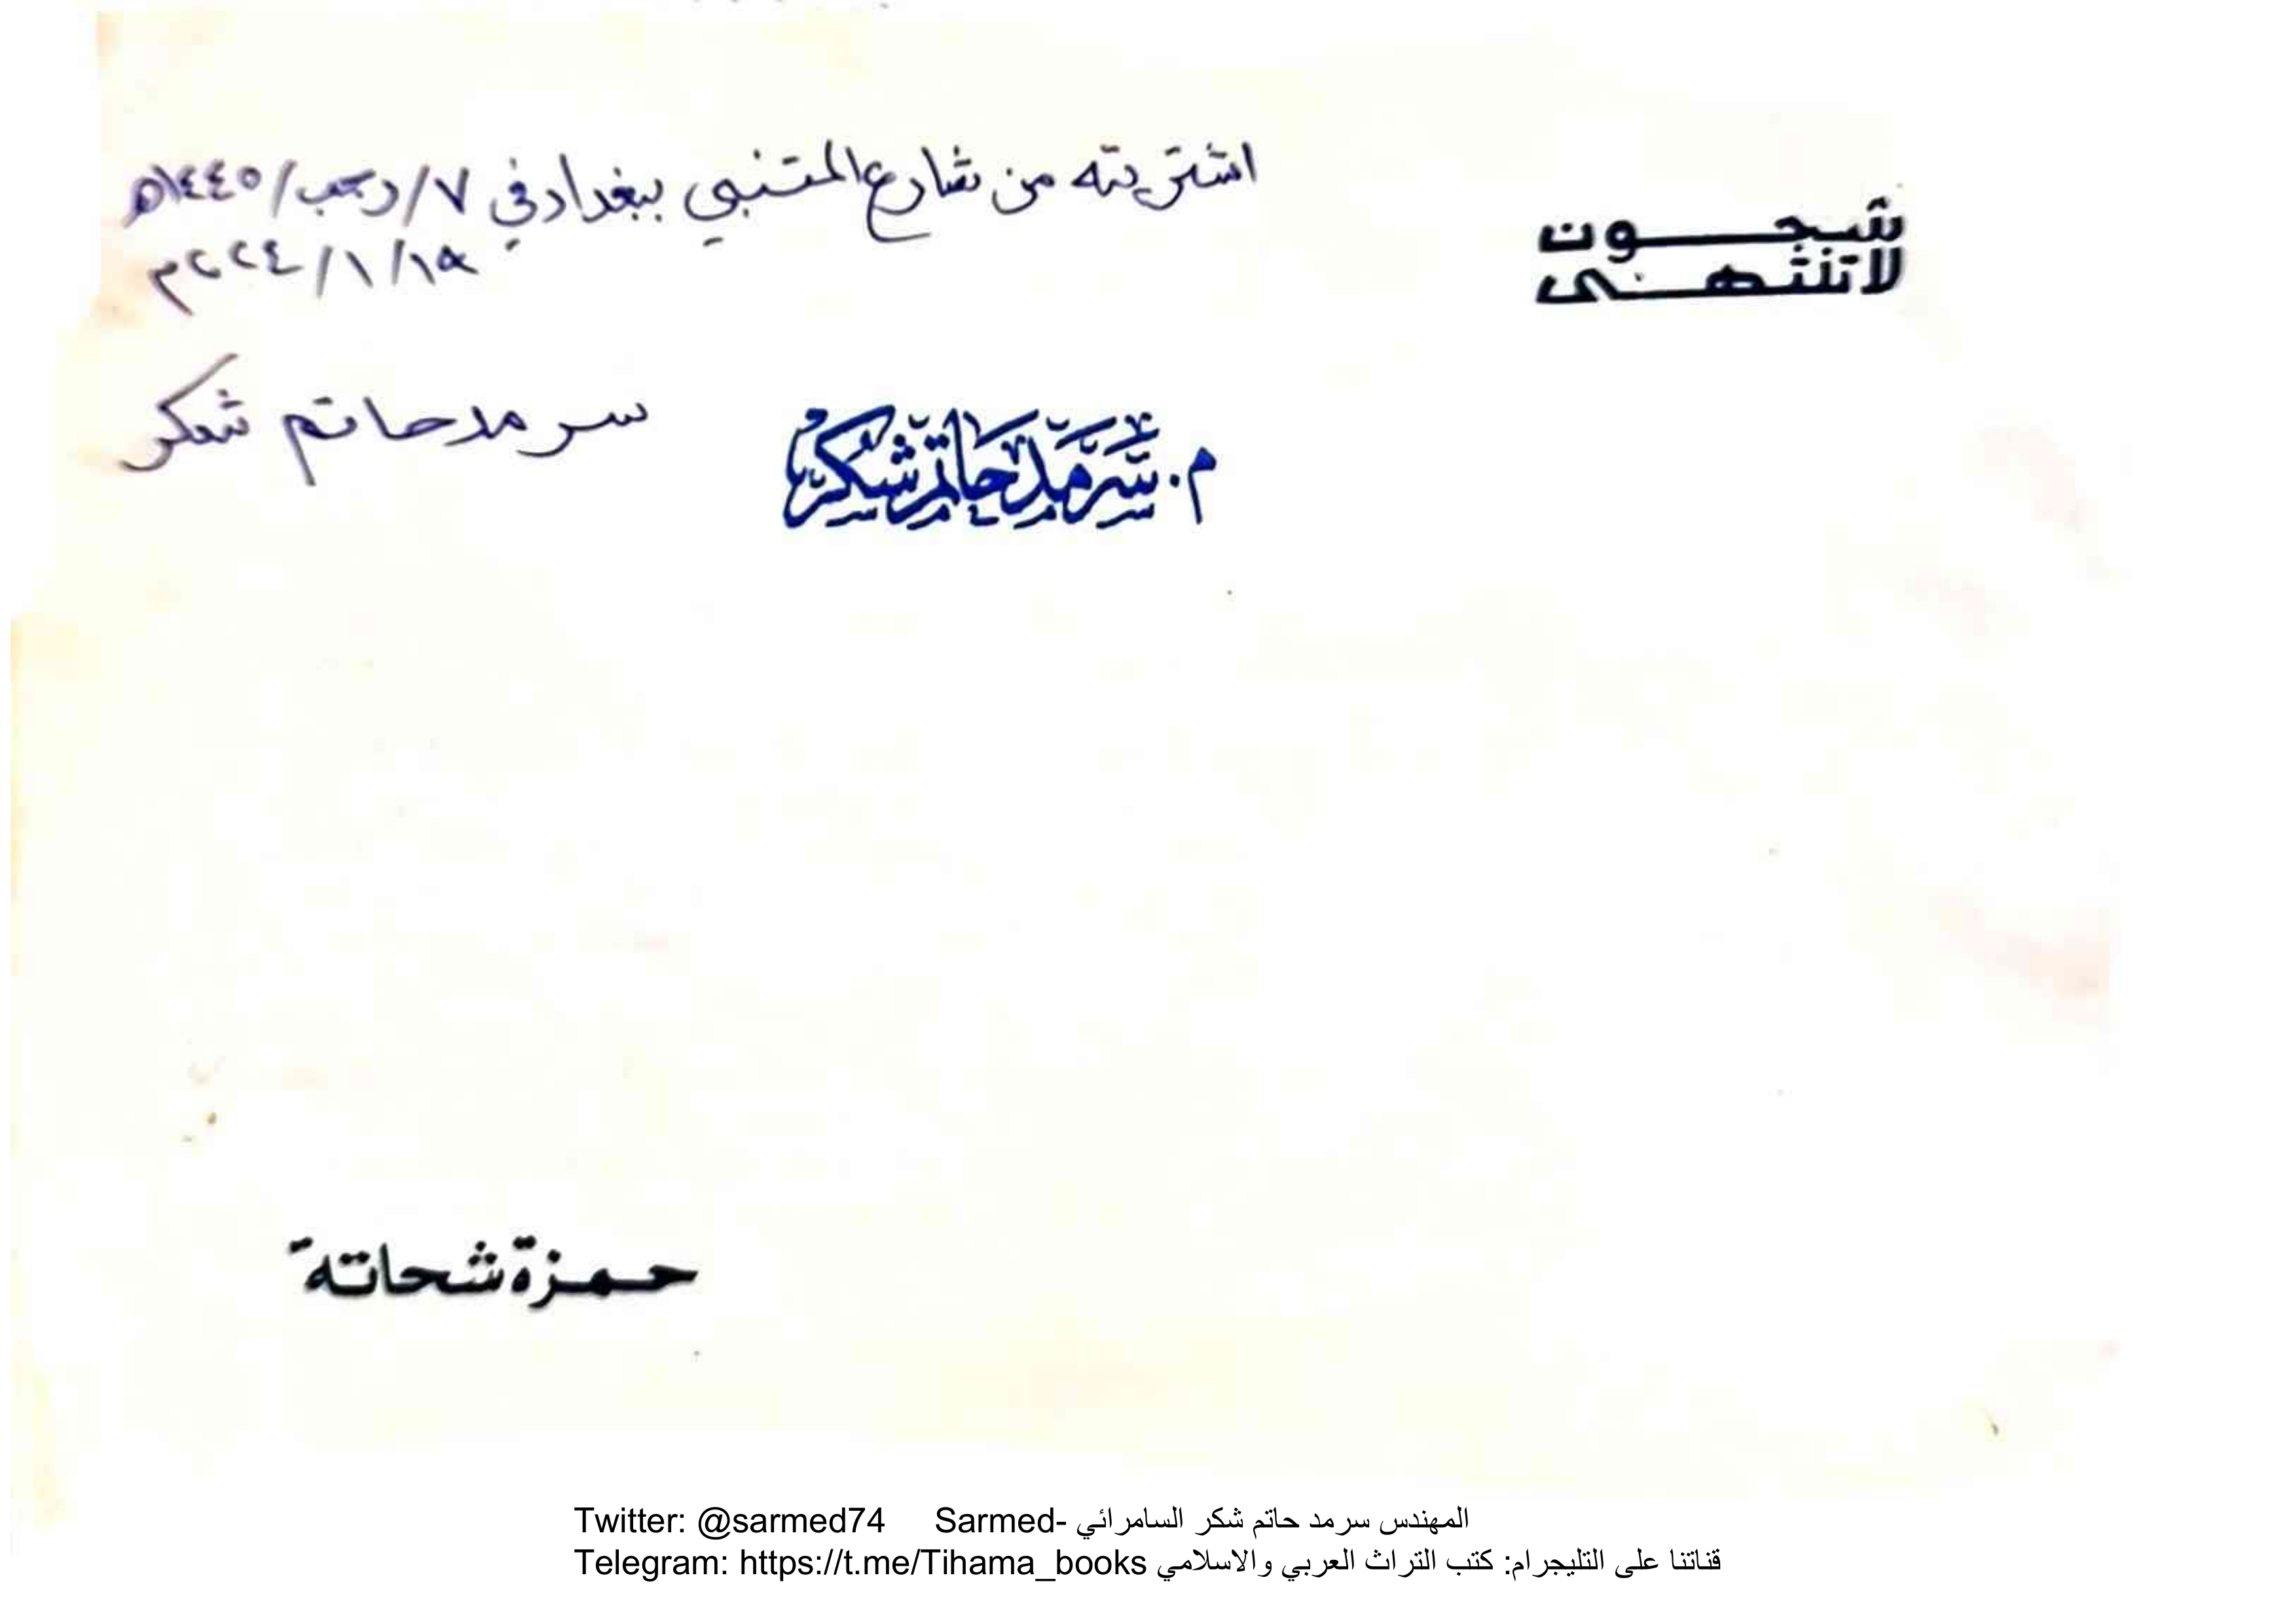 شجون
لا تنتهى
اشتريته من شارع المتنبي ببغداد في ٧/رجب/١٤٤٥ه
١٩/١/٢٠٢٤م
م. سرمد حاتم شكر
سرمد حاتم شكر
حمزة شحاته
Twitter: @sarmed74 Sarmed- المهندس سرمد حاتم شكر السامرائي
Telegram: https://t.me/Tihama_books قناتنا على التليجرام: كتب التراث العربي والاسلامي